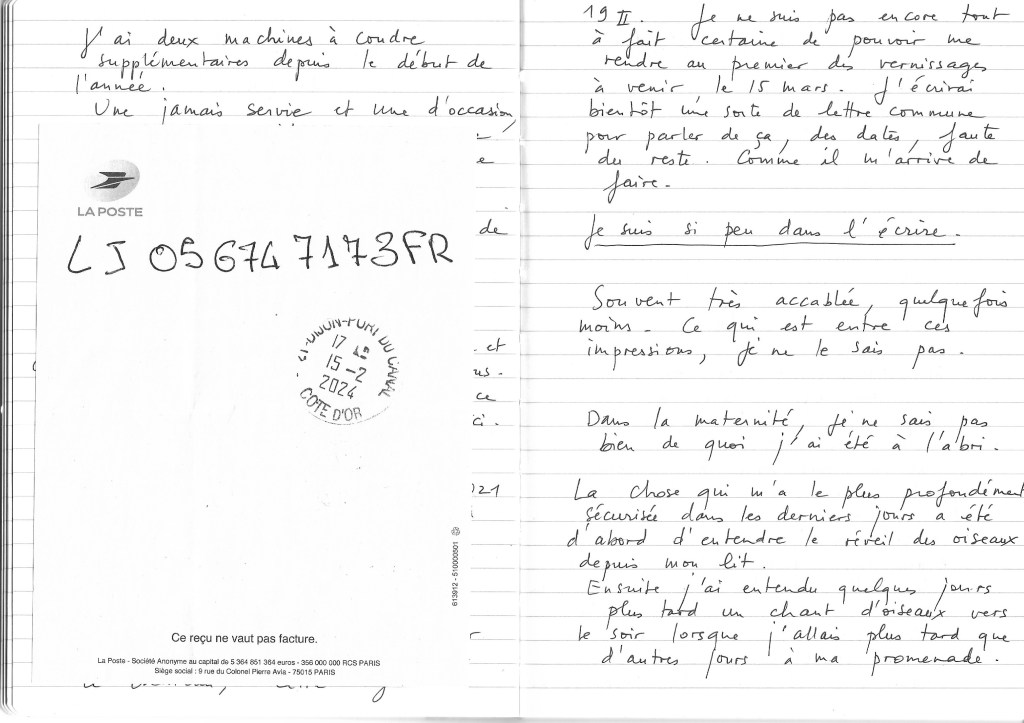 J'ai deux machines à coudre
supplémentaires depuis le début de
l'année.
Une jamais servie et une d'occasion,
e
de
LA POSTE
LJ 05 674 7173FR
21-DIJON-PORT DU CANAL
17
15-2
2024
COTE D'OR
. et
us.
ce
ci.
021
613912 - 510000501
Ce reçu ne vaut pas facture.
La Poste - Société Anonyme au capital de 5 364 851 364 euros - 356 000 000 RCS PARIS
Siège social : 9 rue du Colonel Pierre Avia - 75015 PARIS
19 II. Je ne suis pas encore tout
à fait certaine de pouvoir me
rendre au premier des vernissages
à venir le 15 mars. J'écrirai
bientôt une sorte de lettre commune
pour parler de ça, des dates, faute
du reste. Comme il m'arrive de
faire.
Je suis si peu dans l'écrire.
Souvent très accablée, quelquefois
moins. Ce qui est entre ces
impressions, je ne le sais pas.
Dans la maternité, je ne sais pas
bien de quoi j'ai été à l'abri.
La chose qui m'a le plus profondément
sécurisée dans les derniers jours a été
d'abord d'entendre le réveil des oiseaux
depuis mon lit.
Ensuite j'ai entendu quelques jours
plus tard un chant d'oiseaux vers
le soir lorsque j'allais plus tard que
d'autres jours à ma promenade.